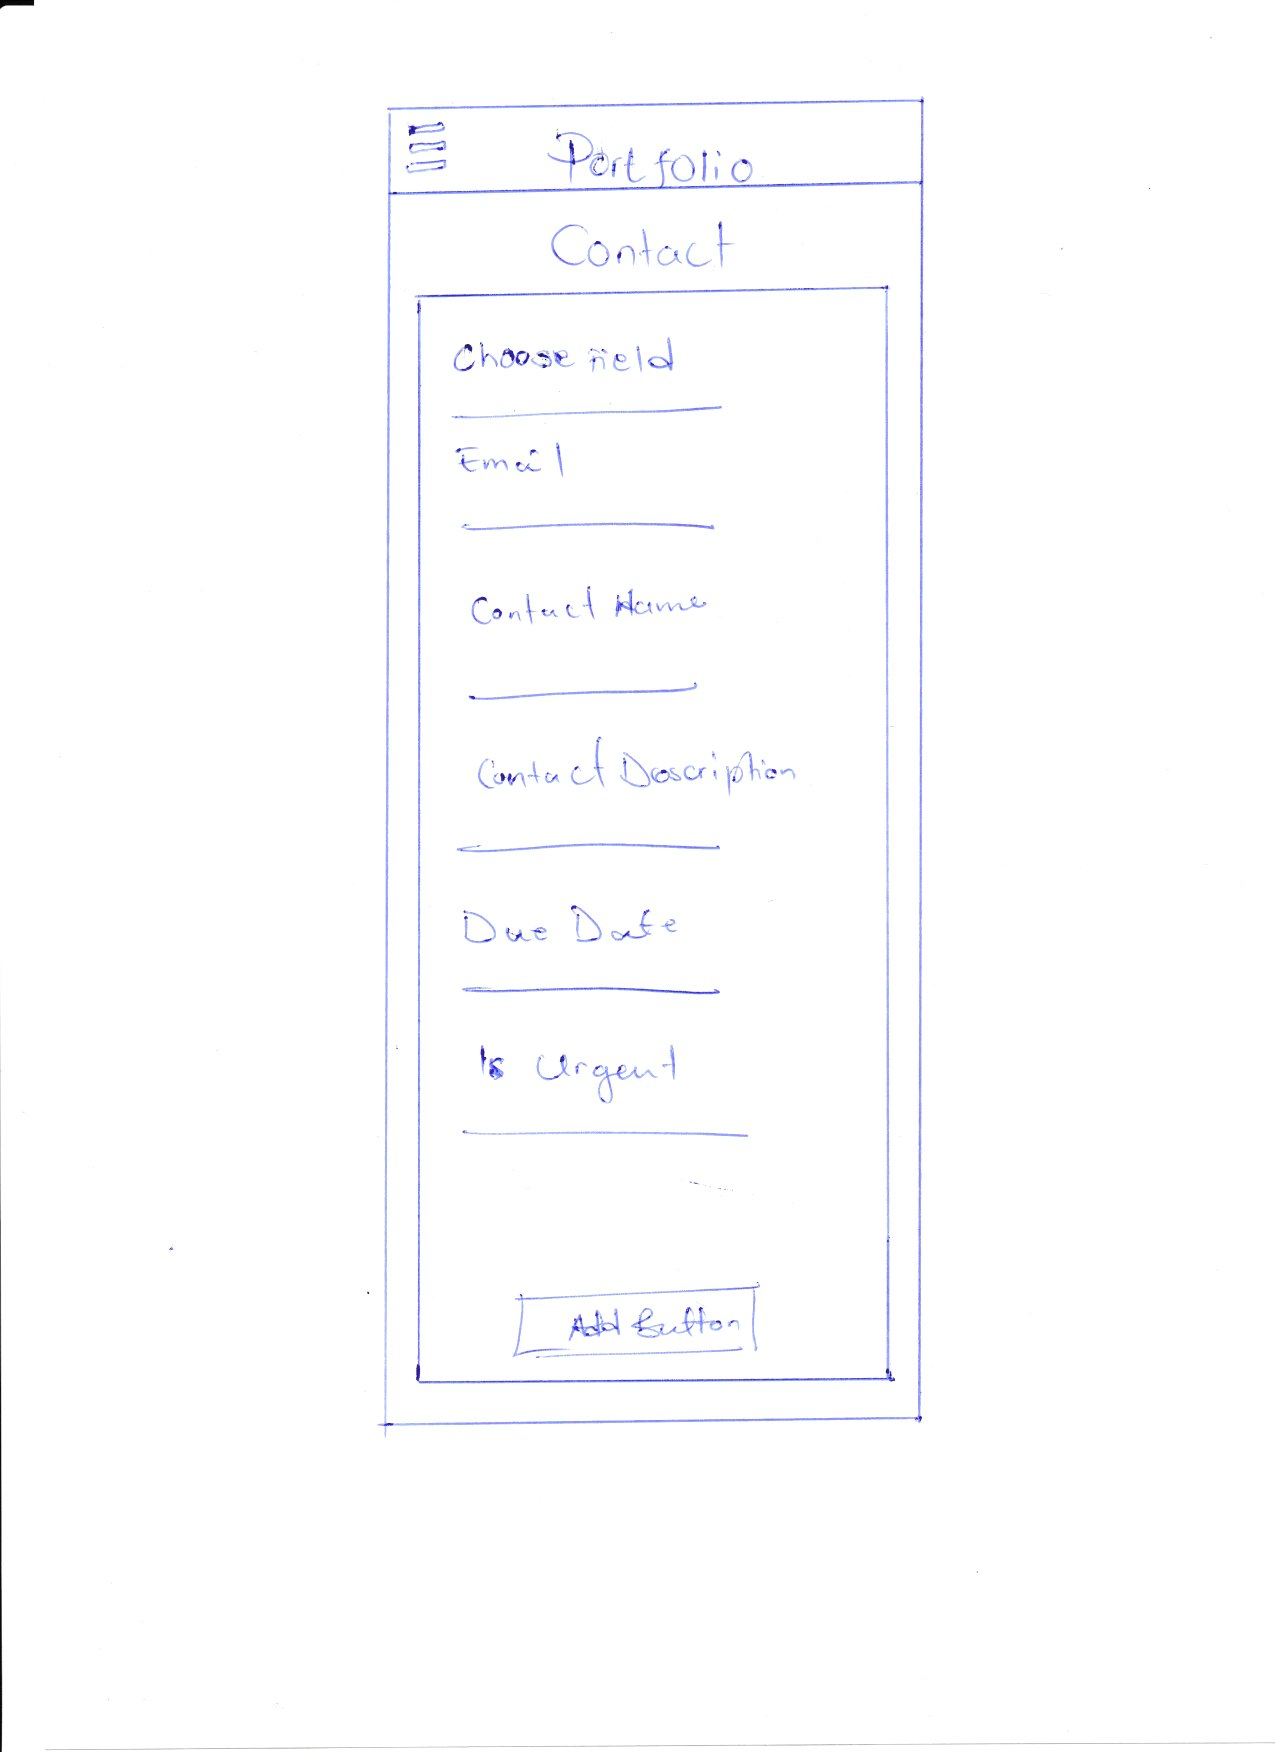 Portfolio
Contact
Choose field
Email
Contact Name
Contact Description
Due Date
Is Urgent
Add Button